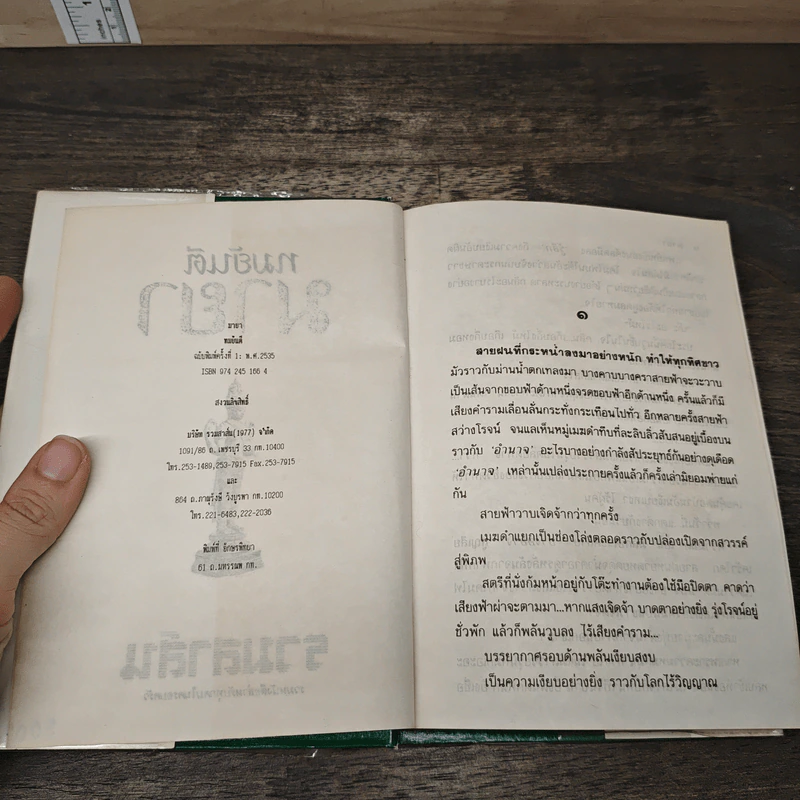 มายา
ทมยันตี
ฉบับพิมพ์ครั้งที่ 1: พ.ศ.2535
ISBN 974 245 166 4
สงวนลิขสิทธิ์
บริษัท รวมสาส์น(1977) จำกัด
1091/86 ถ.เพชรบุรี 33 กท.10400
โทร.253-1489,253-7915 Fax.253-7915
และ
864 ถ.ภาณุรังษี วังบูรพา กท.10200
โทร.221-6483,222-2036
พิมพ์ที่ อักษรพิทยา
61 ถ.มหรรณพ กท.
๑
สายฝนที่กระหน่ำลงมาอย่างหนัก ทำให้ทุกทิศขาว
มัวราวกับม่านน้ำตกเทลงมา บางคาบบางคราสายฟ้าจะวะวาบ
เป็นเส้นจากขอบฟ้าด้านหนึ่งจรดขอบฟ้าอีกด้านหนึ่ง ครั้นแล้วก็มี
เสียงคำรามเลื่อนลั่นกระทั่งกระเทือนไปทั่ว อีกหลายครั้งสายฟ้า
สว่างโรจน์ จนแลเห็นหมู่เมฆดำทึบที่ละลิบลิ่วสับสนอยู่เบื้องบน
ราวกับ 'อำนาจ' อะไรบางอย่างกำลังสัประยุทธ์กันอย่างดุเดือด
'อำนาจ' เหล่านั้นเปล่งประกายครั้งแล้วก็ครั้งเล่ามิยอมพ่ายแก่
กัน
สายฟ้าวาบเจิดจ้ากว่าทุกครั้ง
เมฆดำแยกเป็นช่องโล่งตลอดราวกับปล่องเปิดจากสวรรค์
สู่พิภพ
สตรีที่นั่งก้มหน้าอยู่กับโต๊ะทำงานต้องใช้มือปิดตา คาดว่า
เสียงฟ้าผ่าจะตามมา...หากแสงเจิดจ้า บาดตาอย่างยิ่ง รุ่งโรจน์อยู่
ชั่วพัก แล้วก็พลันวูบลง ไร้เสียงคำราม...
บรรยากาศรอบด้านพลันเงียบสงบ
เป็นความเงียบอย่างยิ่ง ราวกับโลกไร้วิญญาณ